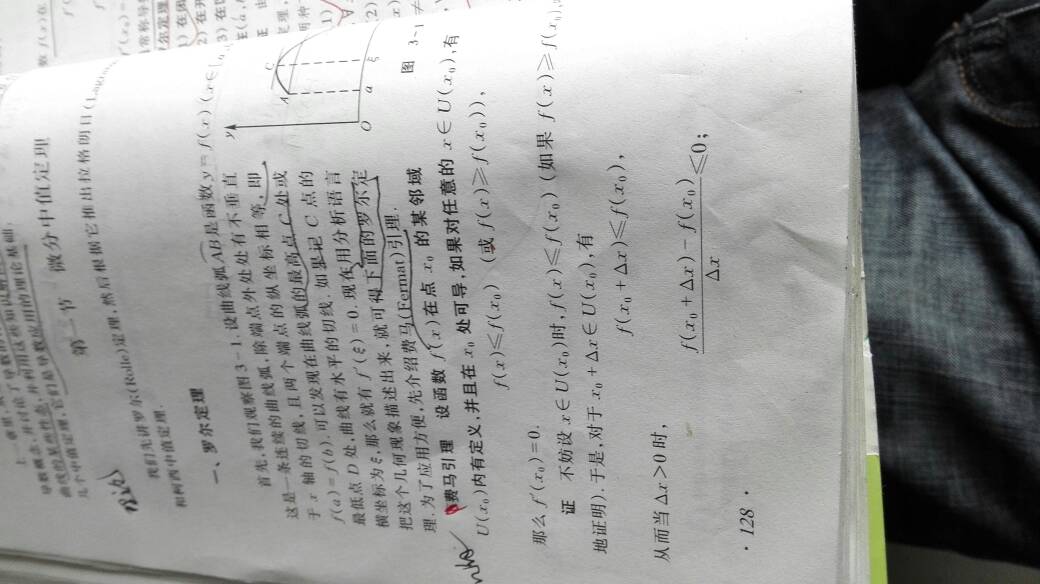 上一章里,
导数概念,并讨论了导数的
曲线的某些性态,并利用这些知识解
几个中值定理,它们是导数应用的理论基础.
第一节 微分中值定理
我们先讲罗尔(Rolle)定理,然后根据它推出拉格朗日(Lagrange)
和柯西中值定理.
一、罗尔定理
首先,我们观察图3-1.设曲线弧AB是函数y=f(x)(x∈[a,
这是一条连续的曲线弧,除端点外处处有不垂直
于x轴的切线,且两个端点的纵坐标相等,即
f(a)=f(b).可以发现在曲线弧的最高点C处或
最低点D处,曲线有水平的切线.如果记C点的
横坐标为ξ,那么就有f′(ξ)=0.现在用分析语言
把这个几何现象描述出来,就可得下面的罗尔定
理.为了应用方便,先介绍费马(Fermat)引理.
y
A
C
O
a
ξ
图 3-1
费马引理 设函数f(x)在点x₀的某邻域
U(x₀)内有定义,并且在x₀处可导,如果对任意的x∈U(x₀),有
f(x)≤f(x₀) (或f(x)≥f(x₀)),
那么f′(x₀)=0.
证 不妨设x∈U(x₀)时,f(x)≤f(x₀)(如果f(x)≥f(x₀),
地证明).于是,对于x₀+Δx∈U(x₀),有
f(x₀+Δx)≤f(x₀),
从而当Δx>0时,
f(x₀+Δx)-f(x₀)
Δx
≤0;
·128·